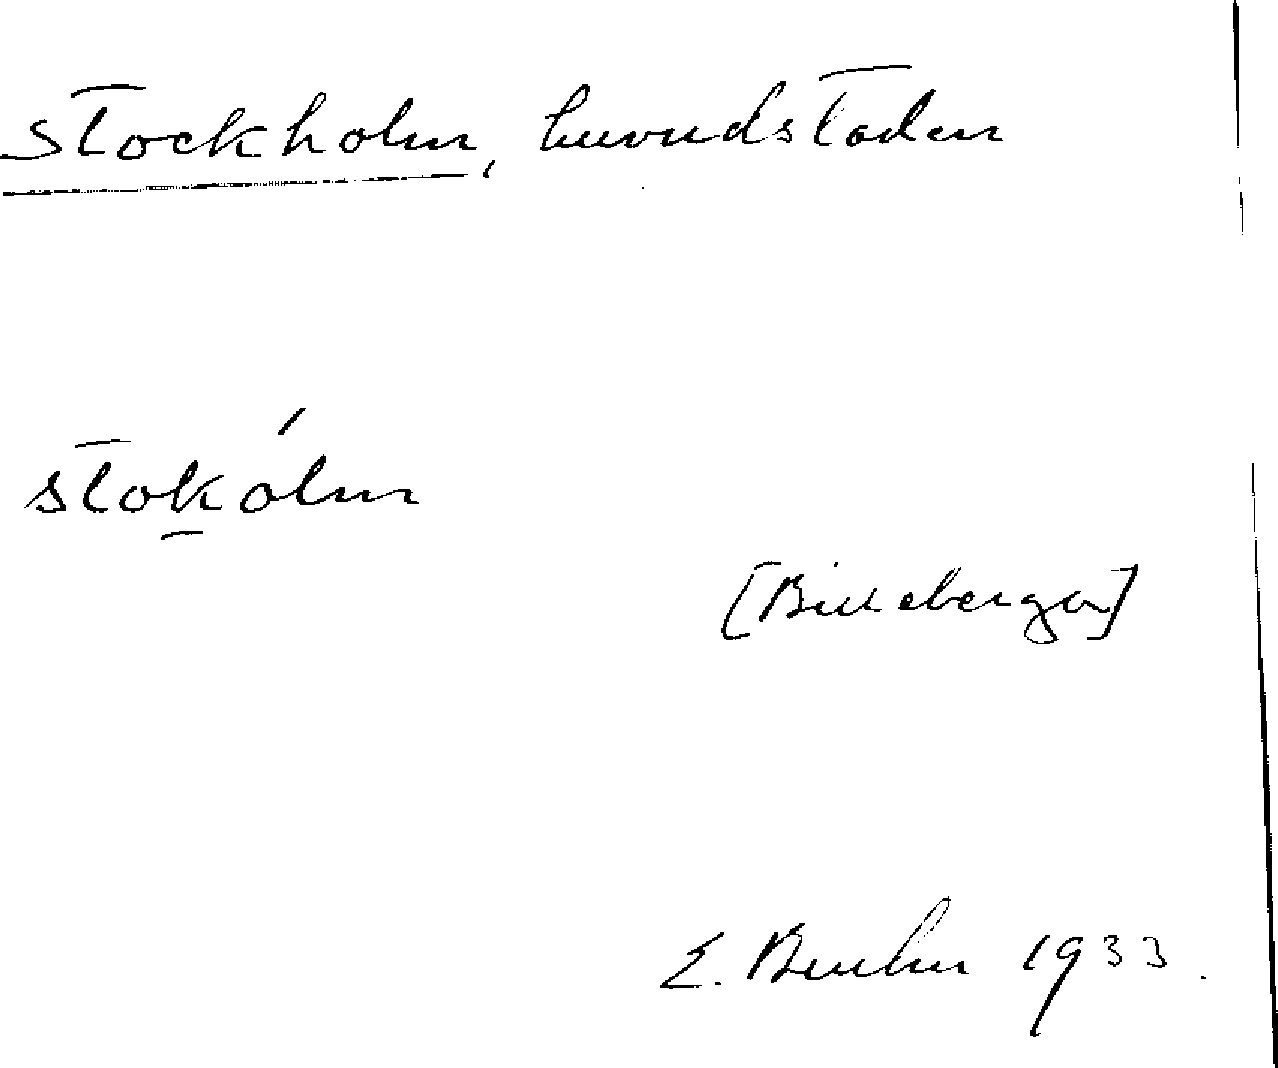 Stockholm, huvudstaden
stokólm
[Billeberga]
E. 1933.